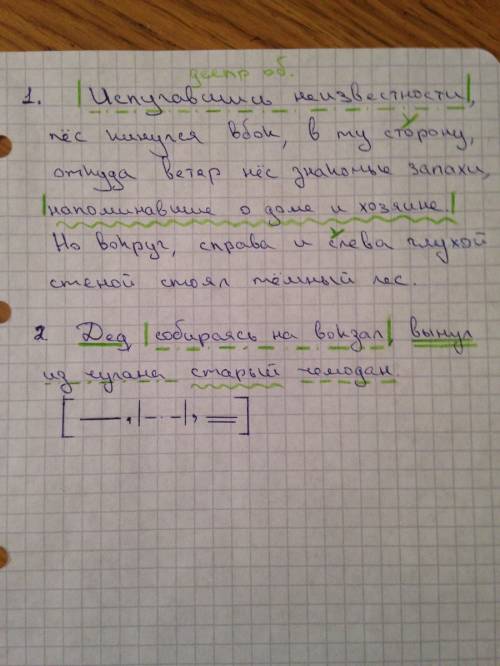 деепр об.
1. |Испугавшись неизвестности|,
пёс кинулся вбок, в ту сторону,
откуда ветер нёс знакомые запахи,
|напоминавшие о доме и хозяине.|
Но вокруг, справа и слева глухой
стеной стоял тёмный лес.
2 Дед, |собираясь на вокзал|, вынул
из чулана старый чемодан.